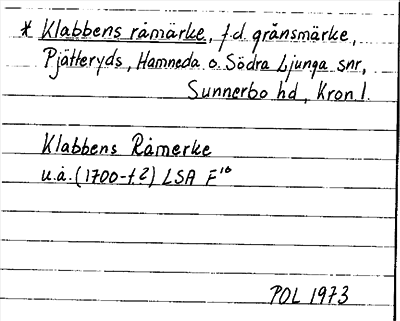 * Klabbens råmärke, f.d. gränsmärke,
Pjätteryds, Hamneda o. Södra Ljunga snr,
Sunnerbo hd, Kron. l.
Klabbens Råmerke
u.å. (1700-t.?) LSA F¹⁶
POL 1973